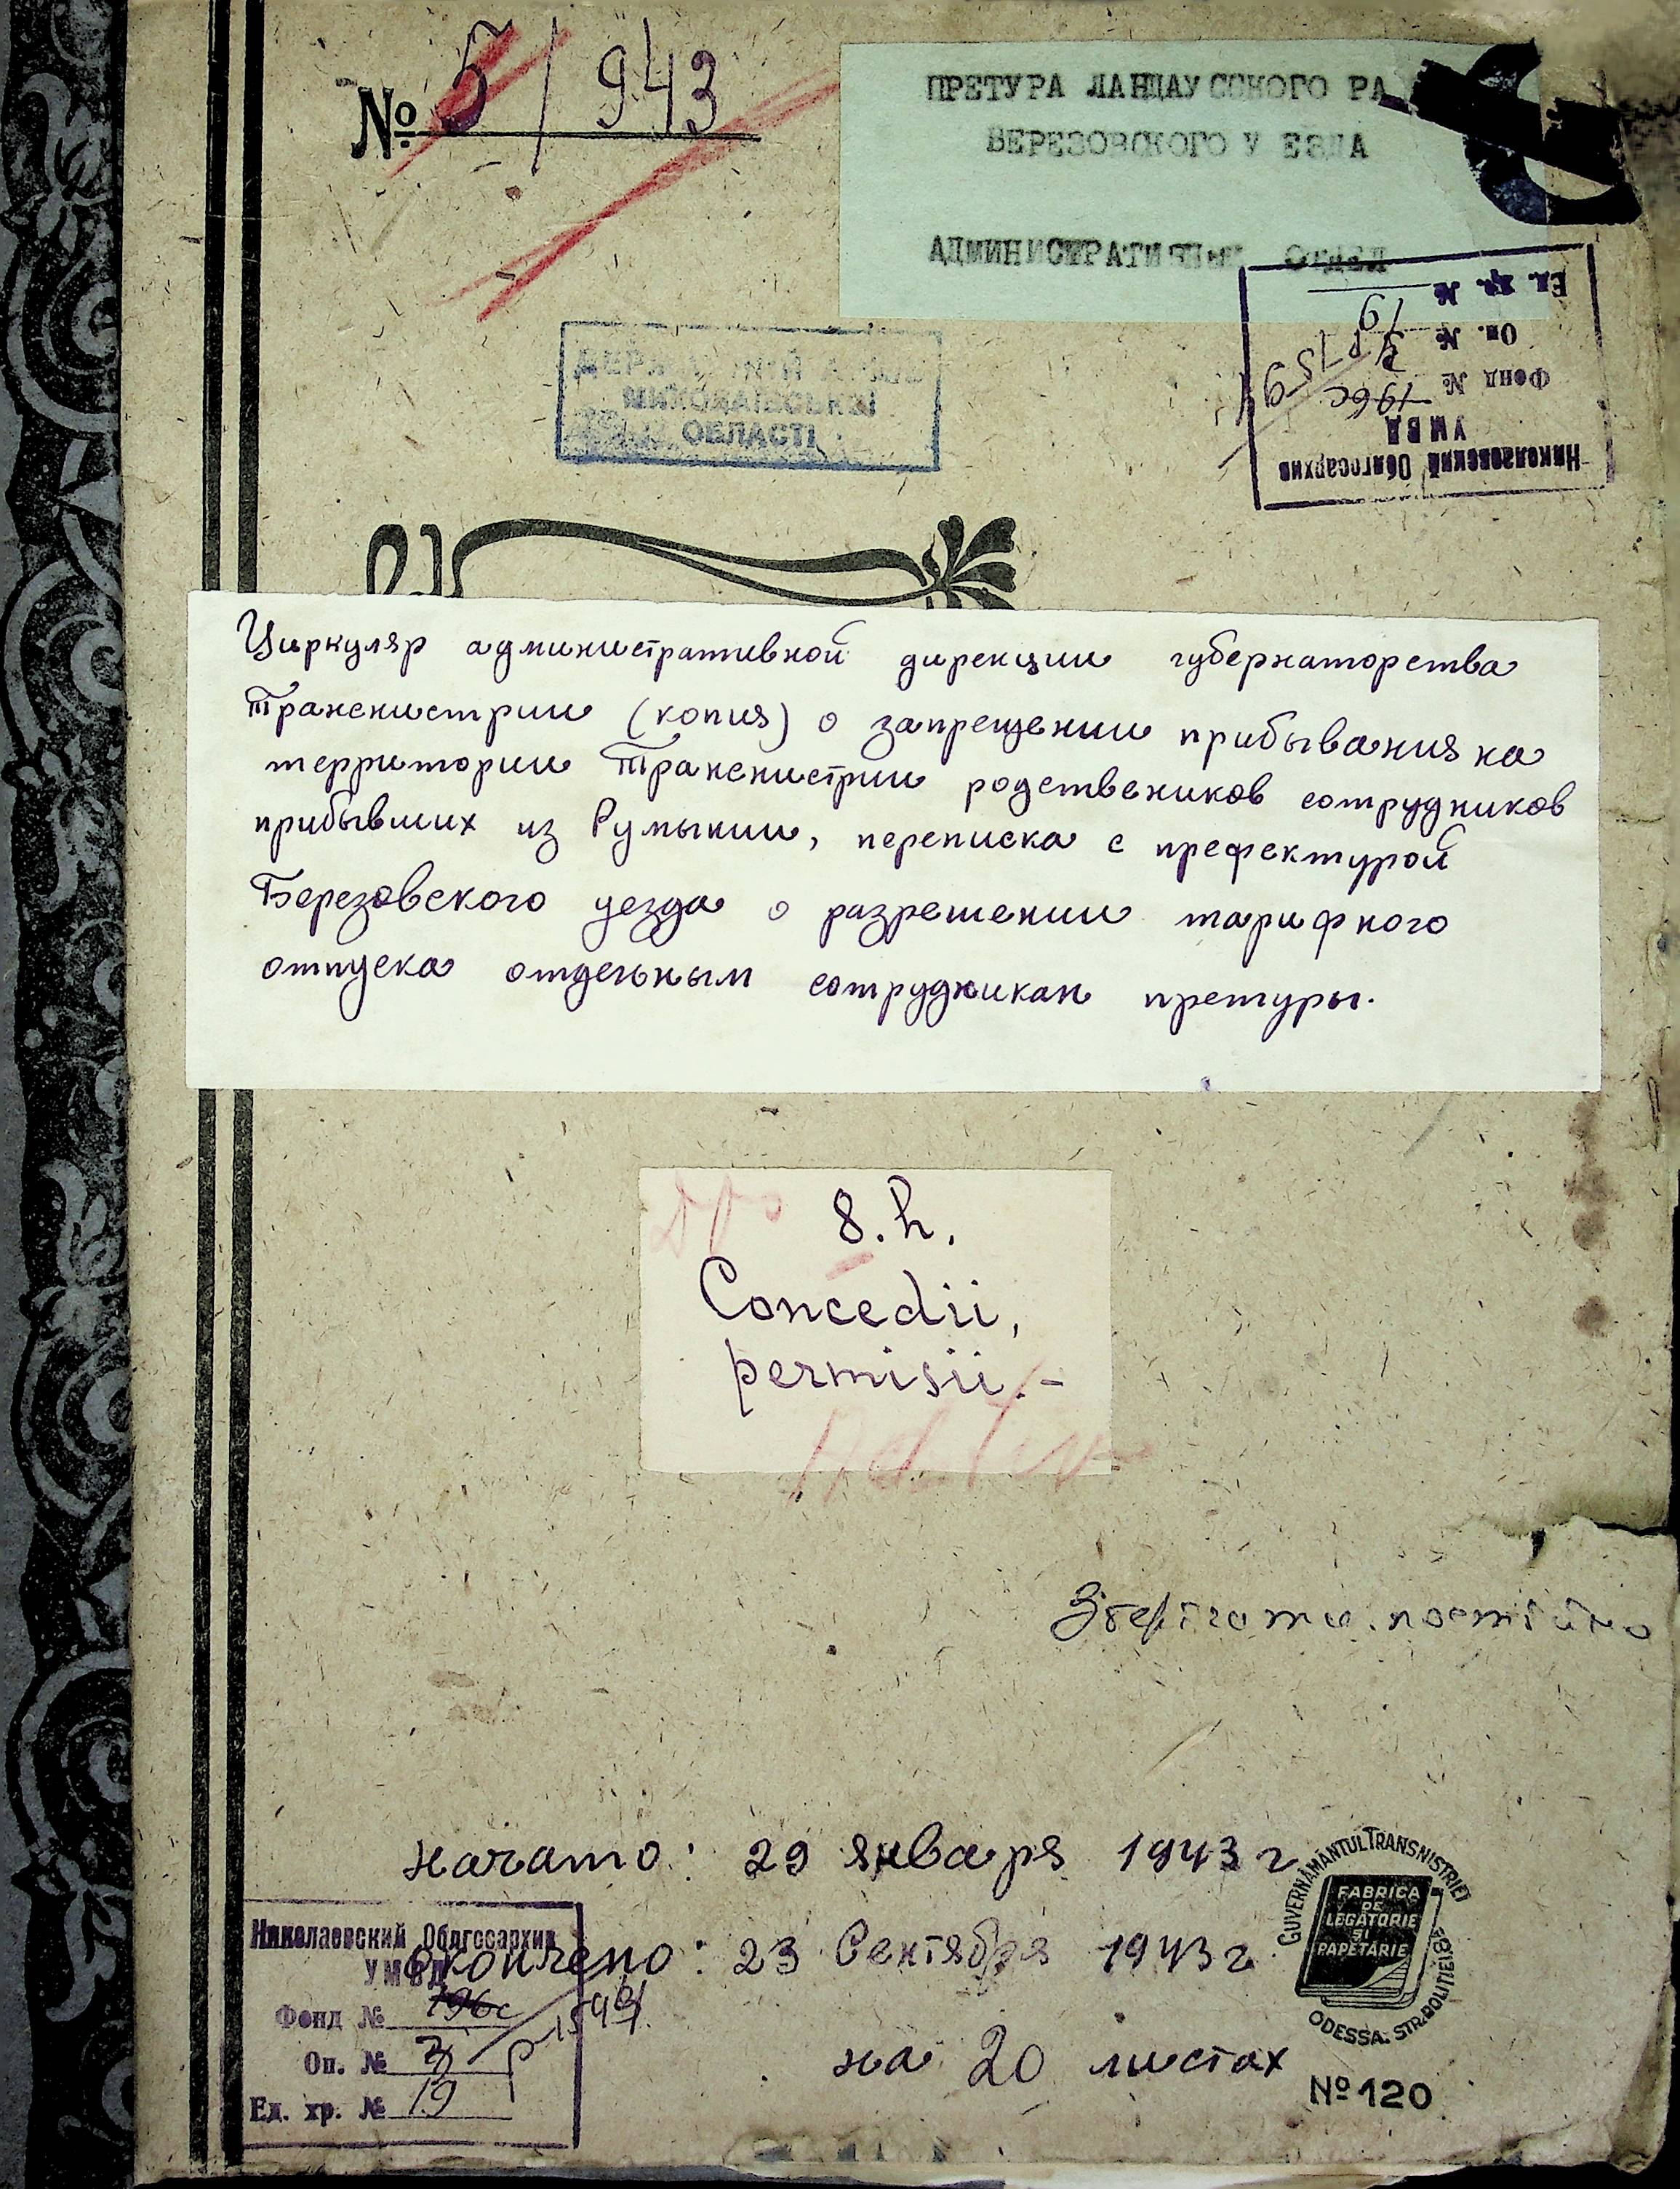 № 5/943
ПРЕТУРА ЛАНДАУССКОГО РА
БЕРЕЗОВСКОГО УЕЗДА
АДМИНИСТРАТИВНЫЙ ОТДЕЛ
МИКОЛАЇВСЬКОЇ
ОБЛАСТІ
Николаевский Облгосархив
УМВД
Фонд № 196с
Оп. №
Ед. хр. № 19
Циркуляр административной дирекции губернаторства
Транснистрии (копия) о запрещении прибывания на
территории Транснистрии родствеников сотрудников
прибывших из Румынии, переписка с префектурой
Березовского уезда о разрешении тарифного
отпуска отдельным сотрудникам претуры.
8. h.
Concedii,
permisii.-
Зберігати постійно
начато: 29 января 1943 г
окончено: 23 Сентября 1943 г.
на 20 листах
Николаевский Облгосархив
УМВД
Фонд № 196с
Оп. №
Ед. хр. № 19
GUVERNĂMÂNTUL TRANSNISTRIEI
FABRICA
DE
LEGĂTORIE
ȘI
PAPETĂRIE
ODESSA. STR. POLITIEI
№ 120